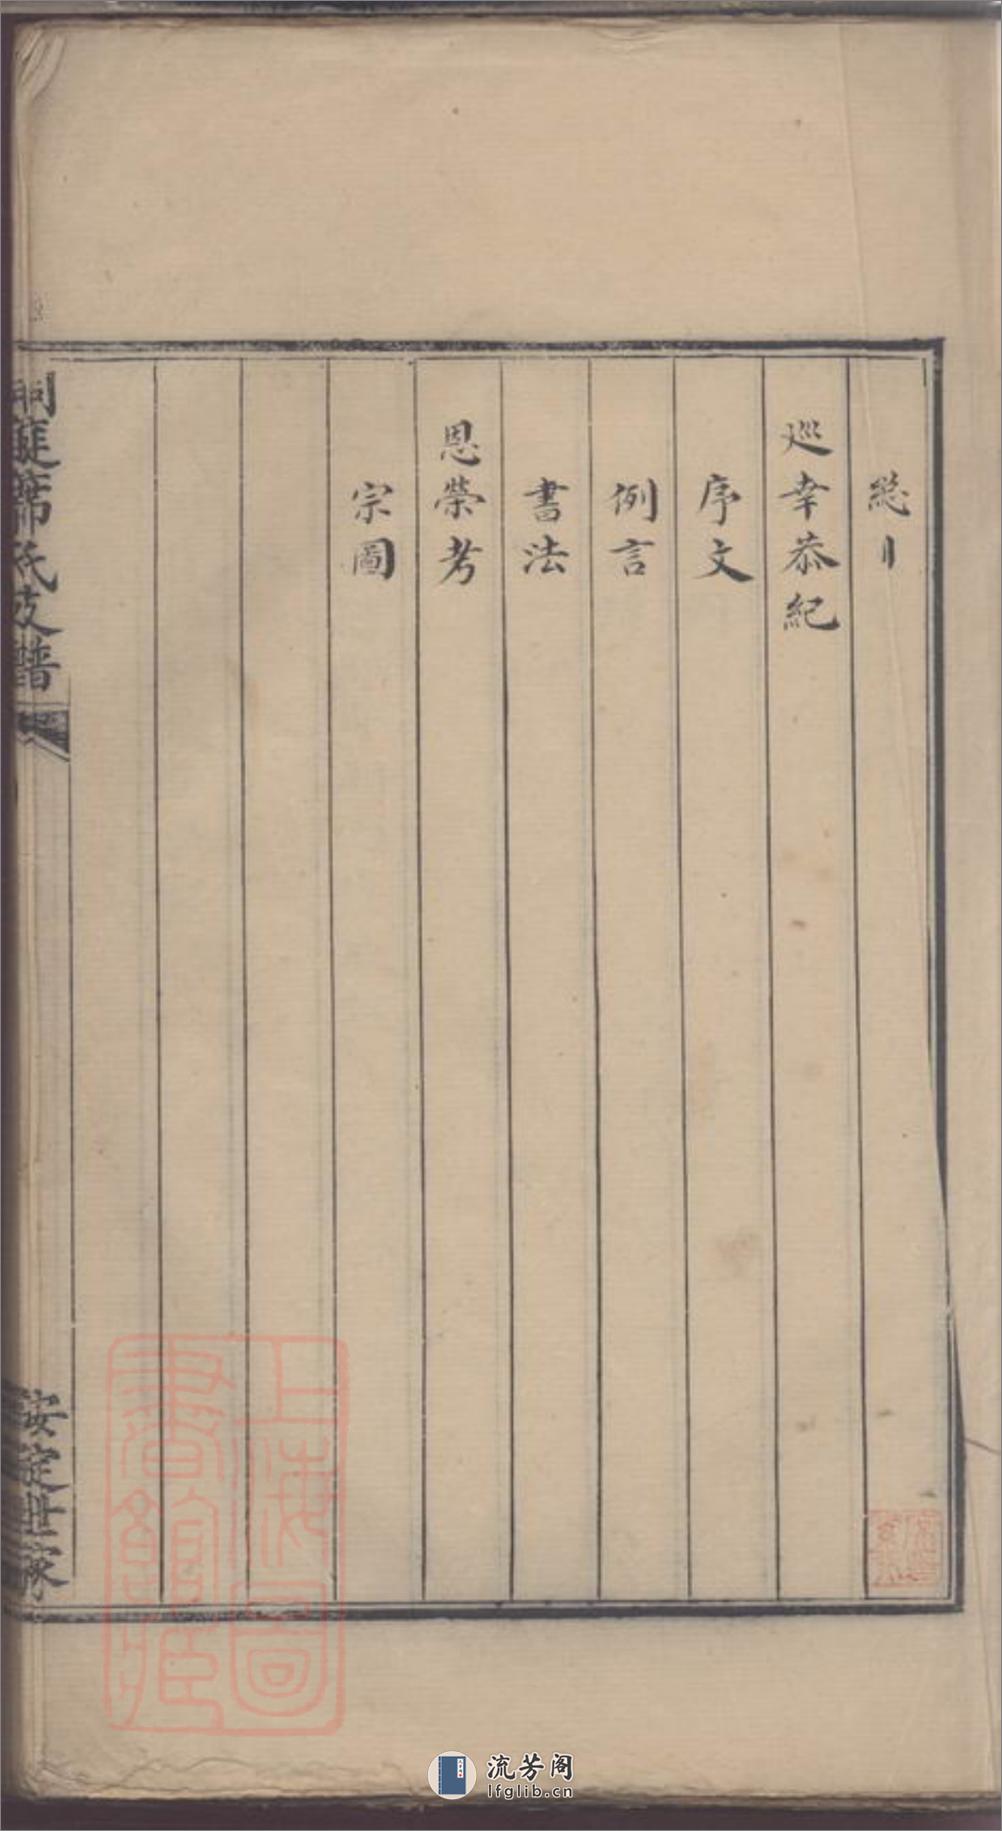 總目
巡幸恭紀
序文
例言
書法
恩榮考
宗圖
席氏支譜
安定世家
上海圖書館藏
流芳阁
lfglib.cn